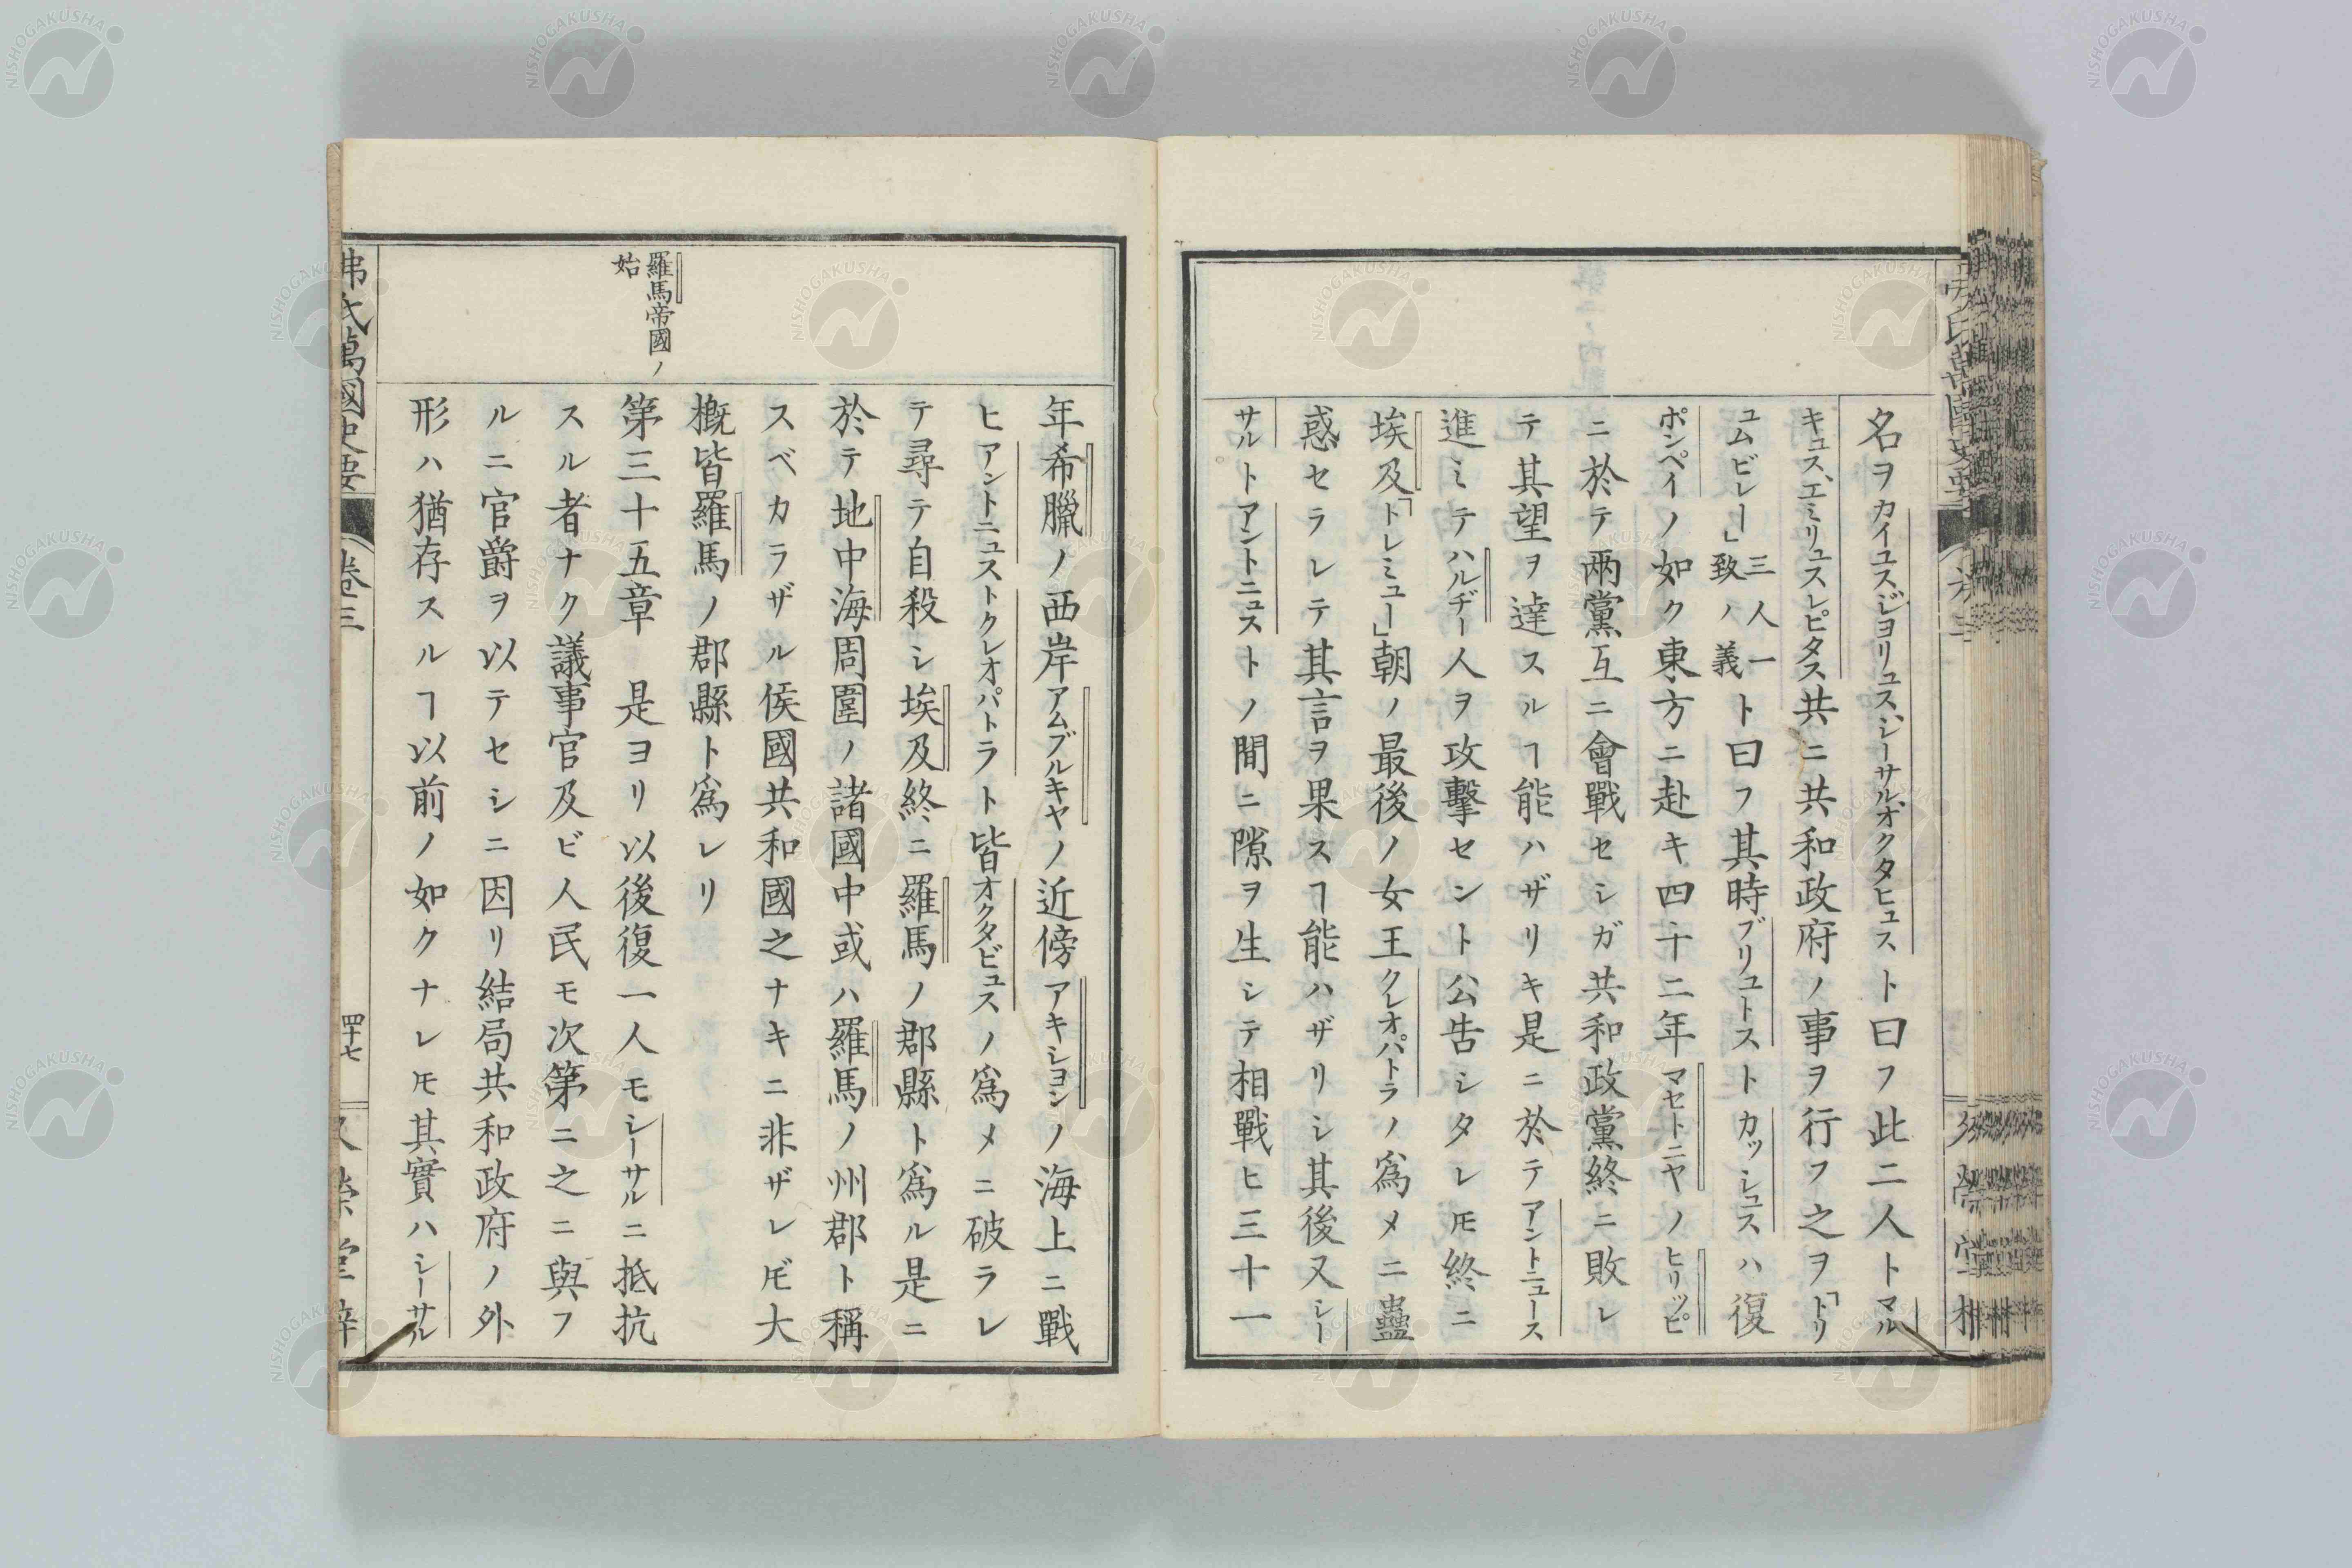 名ヲカイユスジヨリュス、シーサル、オクタヒュスト曰フ此二人トマル
キュス、エミリュスレピタス共ニ共和政府ノ事ヲ行フ之ヲ「トリ
ユムビレー」三人一致ノ義ト曰フ其時ブリュトストカッシュスハ復
ポンペイノ如ク東方ニ赴キ四十二年マセトニヤノヒリッピ
ニ於テ兩黨互ニ會戰セシガ共和政黨終ニ敗レ
テ其望ヲ達スルヿ能ハザリキ是ニ於テアントニュース
進ミテハルヂー人ヲ攻擊セント公告シタレ𪜈終ニ
埃及「トレミユー」朝ノ最後ノ女王クレオパトラノ爲メニ蠱
惑セラレテ其言ヲ果スヿ能ハザリシ其後又シー
サルトアントニュストノ間ニ隙ヲ生シテ相戰ヒ三十一
年希臘ノ西岸アムブルキヤノ近傍アキションノ海上ニ戰
ヒアントニュストクレオパトラト皆オクタビュスノ爲メニ破ラレ
テ尋テ自殺シ埃及終ニ羅馬ノ郡縣ト爲ル是ニ
於テ地中海周圍ノ諸國中或ハ羅馬ノ州郡ト稱
スベカラザル侯國共和國之ナキニ非ザレ𪜈大
概皆羅馬ノ郡縣ト爲レリ
羅馬帝國ノ
始
第三十五章　是ヨリ以後復一人モシーサルニ抵抗
スル者ナク議事官及ビ人民モ次第ニ之ニ與フ
ルニ官爵ヲ以テセシニ因リ結局共和政府ノ外
形ハ猶存スルヿ以前ノ如クナレ𪜈其實ハシーサル
弗氏萬國史要　卷三　四十七